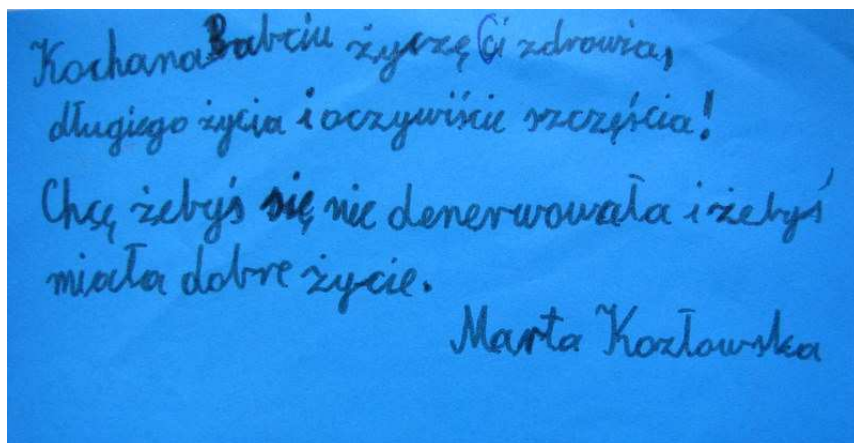 Kochana Babciu życzę Ci zdrowia,
długiego życia i oczywiście szczęścia!
Chcę żebyś się nie denerwowała i żebyś
miała dobre życie.
Marta Kozłowska